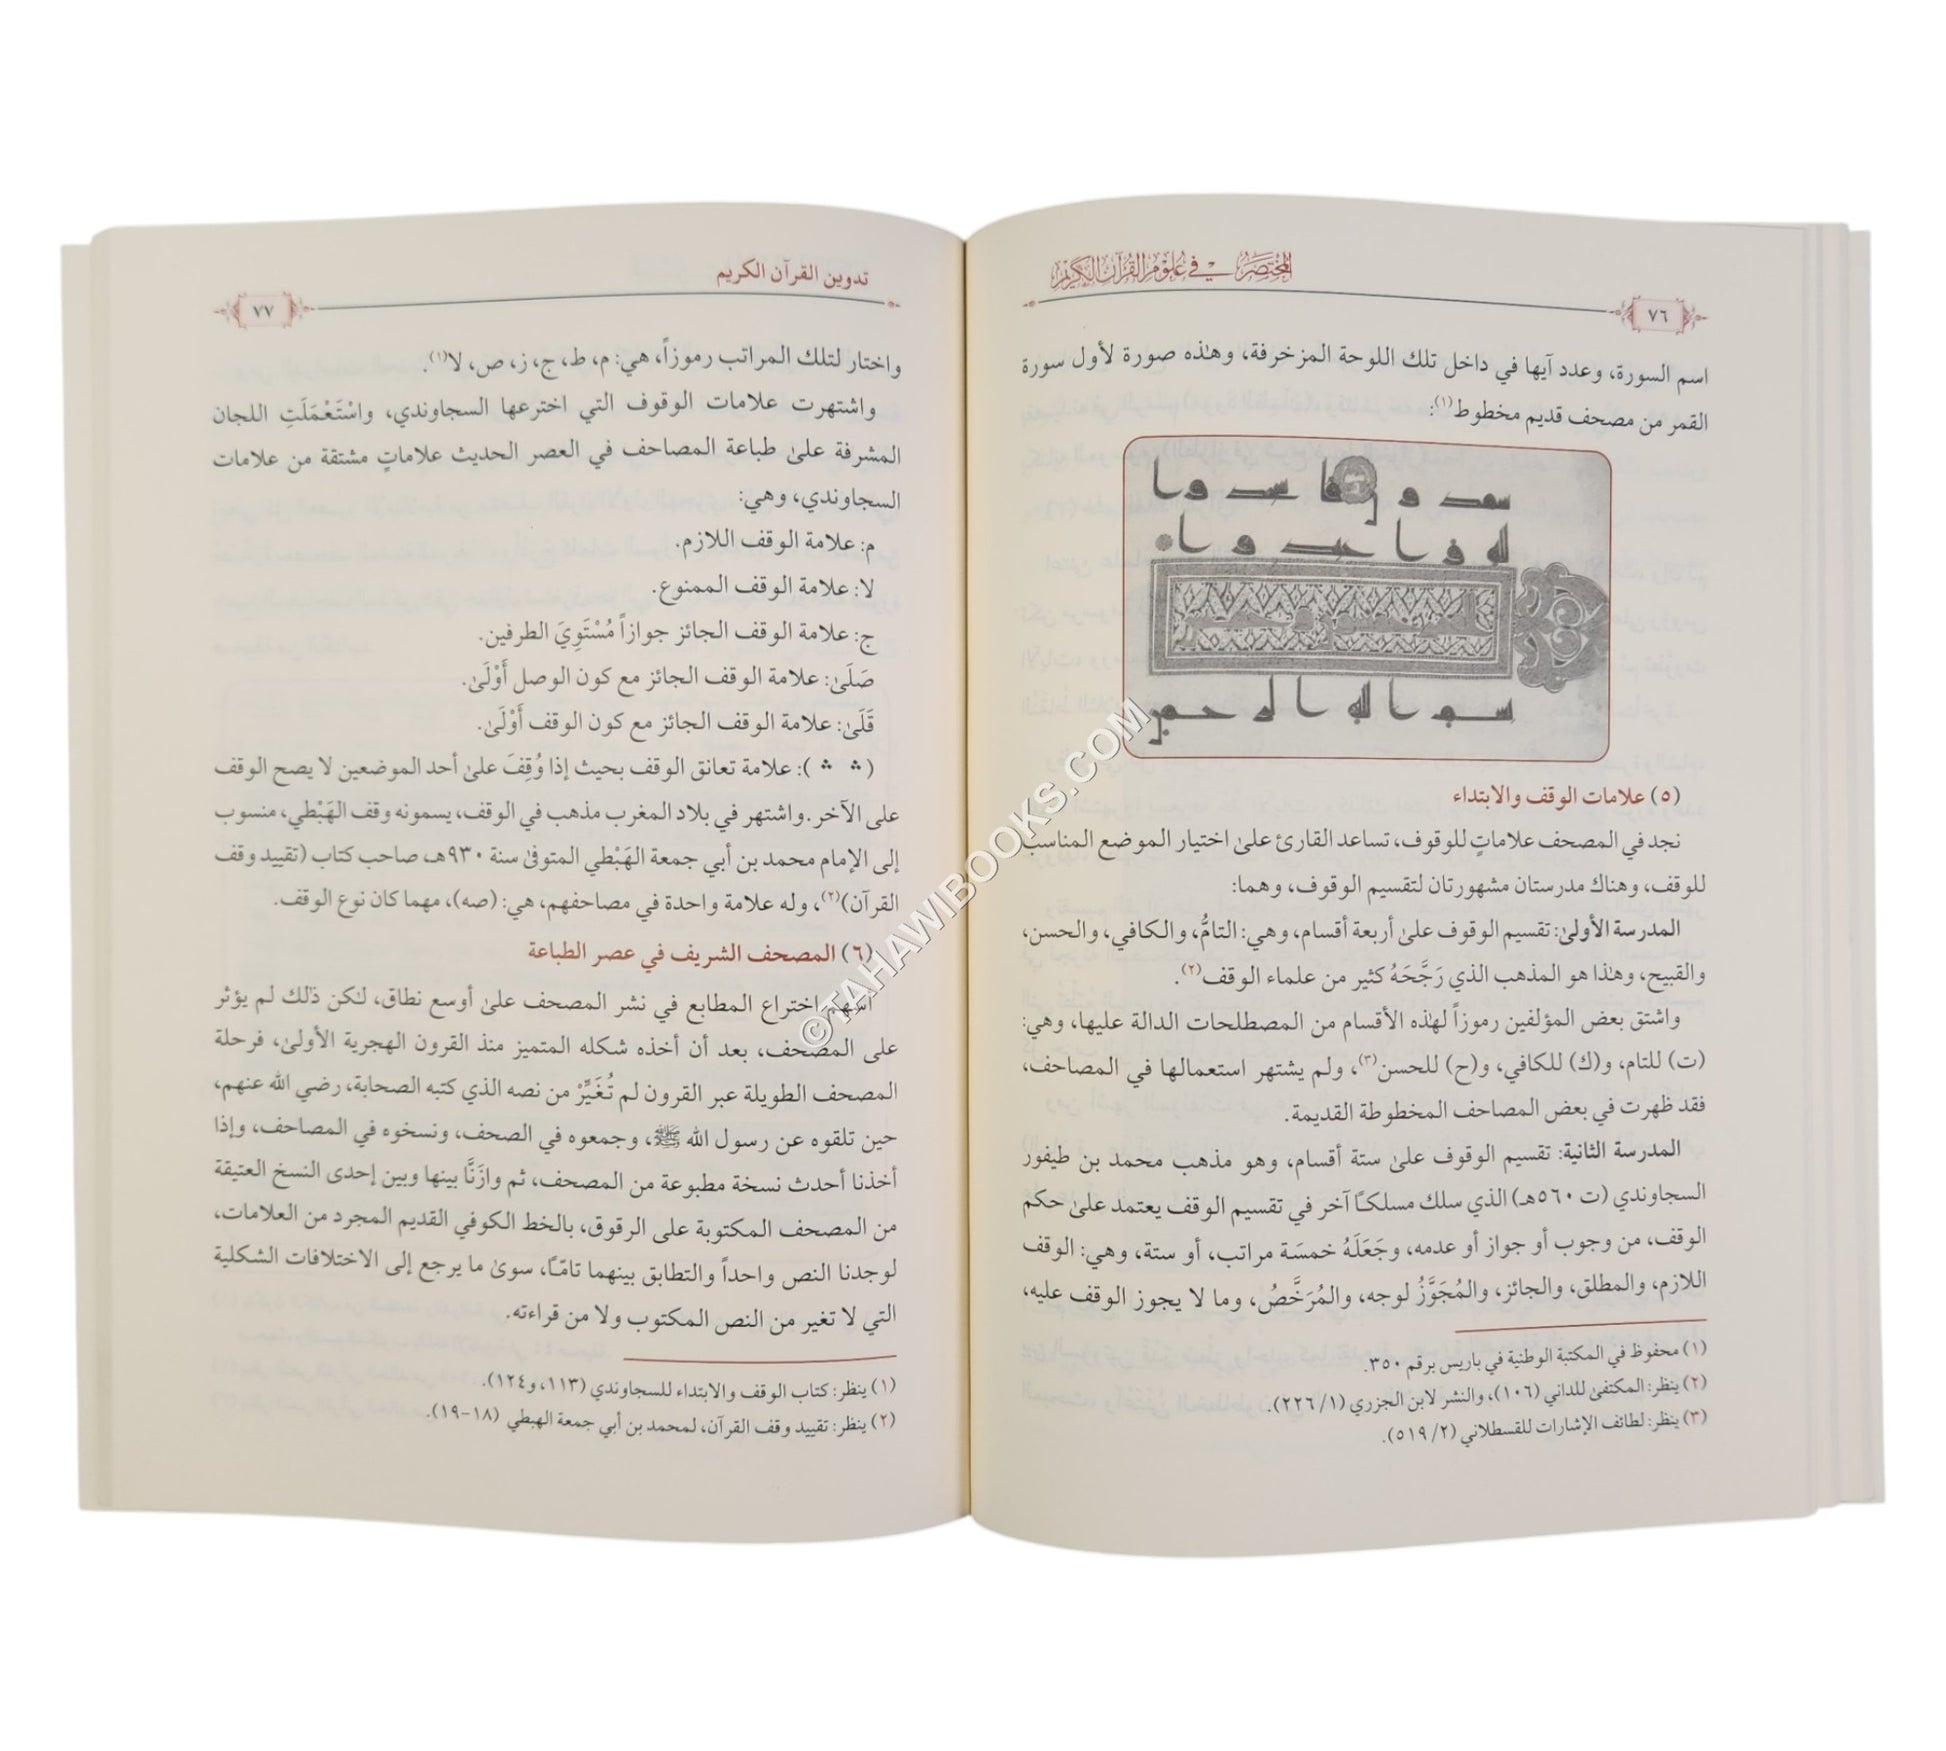 المختصر في علوم القرآن الكريم
٧٦
اسم السورة، وعدد آيها في داخل تلك اللوحة المزخرفة، وهٰذه صورة لأول سورة
القمر من مصحف قديم مخطوط(١):
(٥) علامات الوقف والابتداء
نجد في المصحف علاماتٍ للوقوف، تساعد القارئ علىٰ اختيار الموضع المناسب
للوقف، وهناك مدرستان مشهورتان لتقسيم الوقوف، وهما:
المدرسة الأولىٰ: تقسيم الوقوف علىٰ أربعة أقسام، وهي: التامُّ، والكافي، والحسن،
والقبيح، وهٰذا هو المذهب الذي رَجَّحَهُ كثير من علماء الوقف(٢).
واشتق بعض المؤلفين رموزاً لهٰذه الأقسام من المصطلحات الدالة عليها، وهي:
(ت) للتام، و(ك) للكافي، و(ح) للحسن(٣)، ولم يشتهر استعمالها في المصاحف،
فقد ظهرت في بعض المصاحف المخطوطة القديمة.
المدرسة الثانية: تقسيم الوقوف علىٰ ستة أقسام، وهو مذهب محمد بن طيفور
السجاوندي (ت ٥٦٠هـ) الذي سلك مسلكاً آخر في تقسيم الوقف يعتمد علىٰ حكم
الوقف، من وجوب أو جواز أو عدمه، وجَعَلَهُ خمسَة مراتب، أو ستة، وهي: الوقف
اللازم، والمطلق، والجائز، والمُجَوَّزُ لوجه، والمُرَخَّصُ، وما لا يجوز الوقف عليه،
(١) محفوظ في المكتبة الوطنية في باريس برقم ٣٥٠.
(٢) ينظر: المكتفىٰ للداني (١٠٦)، والنشر لابن الجزري (١/ ٢٢٦).
(٣) ينظر: لطائف الإشارات للقسطلاني (٢/ ٥١٩).
تدوين القرآن الكريم
٧٧
واختار لتلك المراتب رموزاً، هي: م، ط، ج، ز، ص، لا(١).
واشتهرت علامات الوقوف التي اخترعها السجاوندي، واسْتَعْمَلَتِ اللجان
المشرفة علىٰ طباعة المصاحف في العصر الحديث علاماتٍ مشتقة من علامات
السجاوندي، وهي:
م: علامة الوقف اللازم.
لا: علامة الوقف الممنوع.
ج: علامة الوقف الجائز جوازاً مُسْتَوِيَ الطرفين.
صَلَىٰ: علامة الوقف الجائز مع كون الوصل أَوْلَىٰ.
قَلَىٰ: علامة الوقف الجائز مع كون الوقف أَوْلَىٰ.
(∴ ∴): علامة تعانق الوقف بحيث إذا وُقِفَ علىٰ أحد الموضعين لا يصح الوقف
على الآخر. واشتهر في بلاد المغرب مذهب في الوقف، يسمونه وقف الهَبْطي، منسوب
إلى الإمام محمد بن أبي جمعة الهَبْطي المتوفىٰ سنة ٩٣٠هـ، صاحب كتاب (تقييد وقف
القرآن)(٢)، وله علامة واحدة في مصاحفهم، هي: (صه)، مهما كان نوع الوقف.
(٦) المصحف الشريف في عصر الطباعة
أسهم اختراع المطابع في نشر المصحف علىٰ أوسع نطاق، لٰكن ذٰلك لم يؤثر
على المصحف، بعد أن أخذه شكله المتميز منذ القرون الهجرية الأولىٰ، فرحلة
المصحف الطويلة عبر القرون لم تُغَيِّرْ من نصه الذي كتبه الصحابة، رضي الله عنهم،
حين تلقوه عن رسول الله ﷺ، وجمعوه في الصحف، ونسخوه في المصاحف، وإذا
أخذنا أحدث نسخة مطبوعة من المصحف، ثم وازَنَّا بينها وبين إحدى النسخ العتيقة
من المصحف المكتوبة على الرقوق، بالخط الكوفي القديم المجرد من العلامات،
لوجدنا النص واحداً والتطابق بينهما تامّاً، سوىٰ ما يرجع إلى الاختلافات الشكلية
التي لا تغير من النص المكتوب ولا من قراءته.
(١) ينظر: كتاب الوقف والابتداء للسجاوندي (١١٣، و١٢٤).
(٢) ينظر: تقييد وقف القرآن، لمحمد بن أبي جمعة الهبطي (١٨-١٩).
©TAHAWIBOOKS.COM